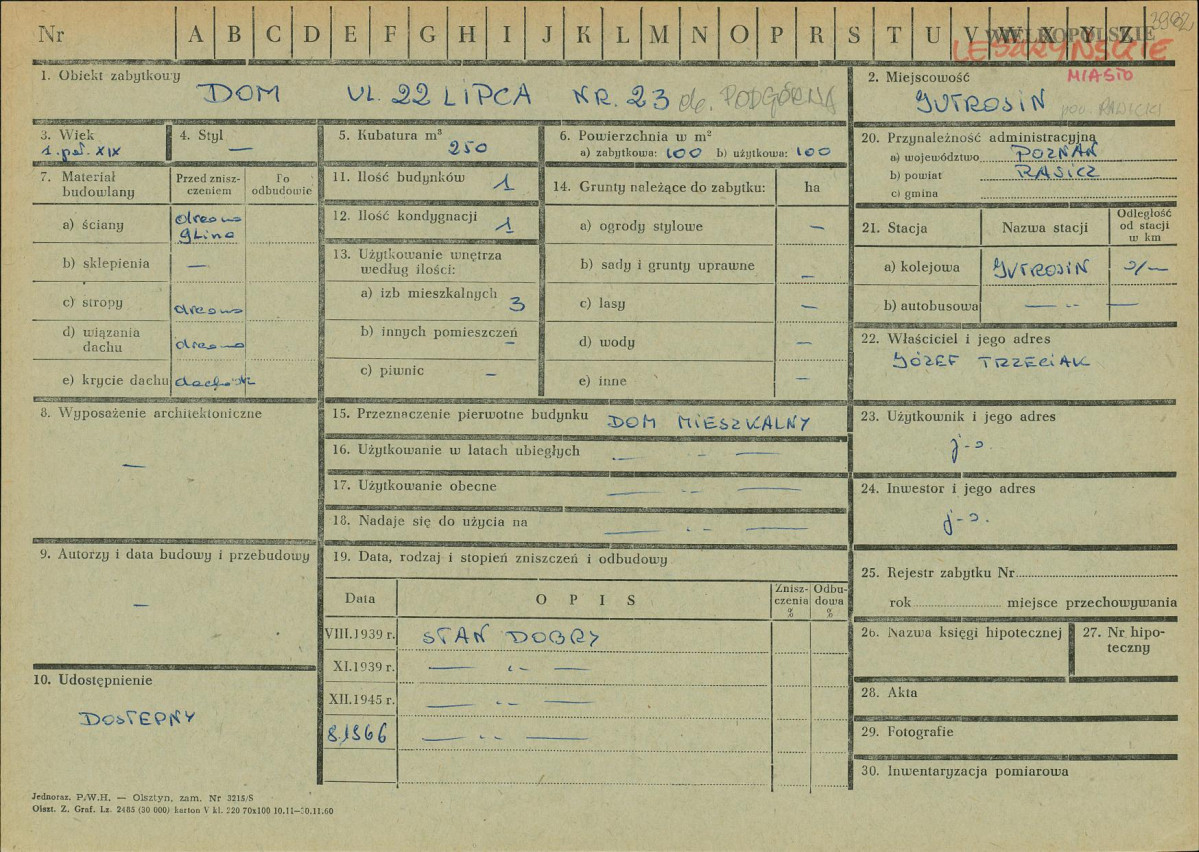 Nr A B C D E F G H I J K L M N O P R S T U V W X Y Z 3982
WIELKOPOLSKIE
LESZCZYŃSKIE
MIASTO
1. Obiekt zabytkowy
DOM UL. 22 LIPCA NR. 23 PODGÓRNA
2. Miejscowość
JUTROSIN pow. RAWICKI
3. Wiek
1. poł. XIX
4. Styl
—
5. Kubatura m³
250
6. Powierzchnia w m²
a) zabytkowa: 100 b) użytkowa: 100
7. Materiał budowlany
Przed znisz-
czeniem
Po
odbudowie
a) ściany drewno
glina
b) sklepienia —
c) stropy drewno
d) wiązania
dachu drewno
e) krycie dachu dachówk
8. Wyposażenie architektoniczne
—
9. Autorzy i data budowy i przebudowy
—
10. Udostępnienie
DOSTEPNY
11. Ilość budynków 1
12. Ilość kondygnacji 1
13. Użytkowanie wnętrza
według ilości:
a) izb mieszkalnych 3
b) innych pomieszczeń —
c) piwnic —
14. Grunty należące do zabytku: ha
a) ogrody stylowe —
b) sady i grunty uprawne —
c) lasy —
d) wody —
e) inne —
15. Przeznaczenie pierwotne budynku DOM MIESZKALNY
16. Użytkowanie w latach ubiegłych — „ —
17. Użytkowanie obecne — „ —
18. Nadaje się do użycia na — „ —
19. Data, rodzaj i stopień zniszczeń i odbudowy
Data OPIS Znisz-
czenia
% Odbu-
dowa
%
VIII.1939 r. STAN DOBRY
XI.1939 r. — „ —
XII.1945 r. — „ —
8.1966 — „ —
20. Przynależność administracyjna
a) województwo POZNAŃ
b) powiat RAWICZ
c) gmina
21. Stacja Nazwa stacji Odległość
od stacji
w km
a) kolejowa JUTROSIN
b) autobusowa — „ — —
22. Właściciel i jego adres
JÓZEF TRZECIAK
23. Użytkownik i jego adres
j-w.
24. Inwestor i jego adres
j-w.
25. Rejestr zabytku Nr
rok miejsce przechowywania
26. Nazwa księgi hipotecznej
27. Nr hipo-
teczny
28. Akta
29. Fotografie
30. Inwentaryzacja pomiarowa
Jednoraz. P.W.H. — Olsztyn, zam. Nr 3215/S
Olszt. Z. Graf. Lz. 2485 (30 000) karton V kl. 220 70x100 10.11—30.11.60